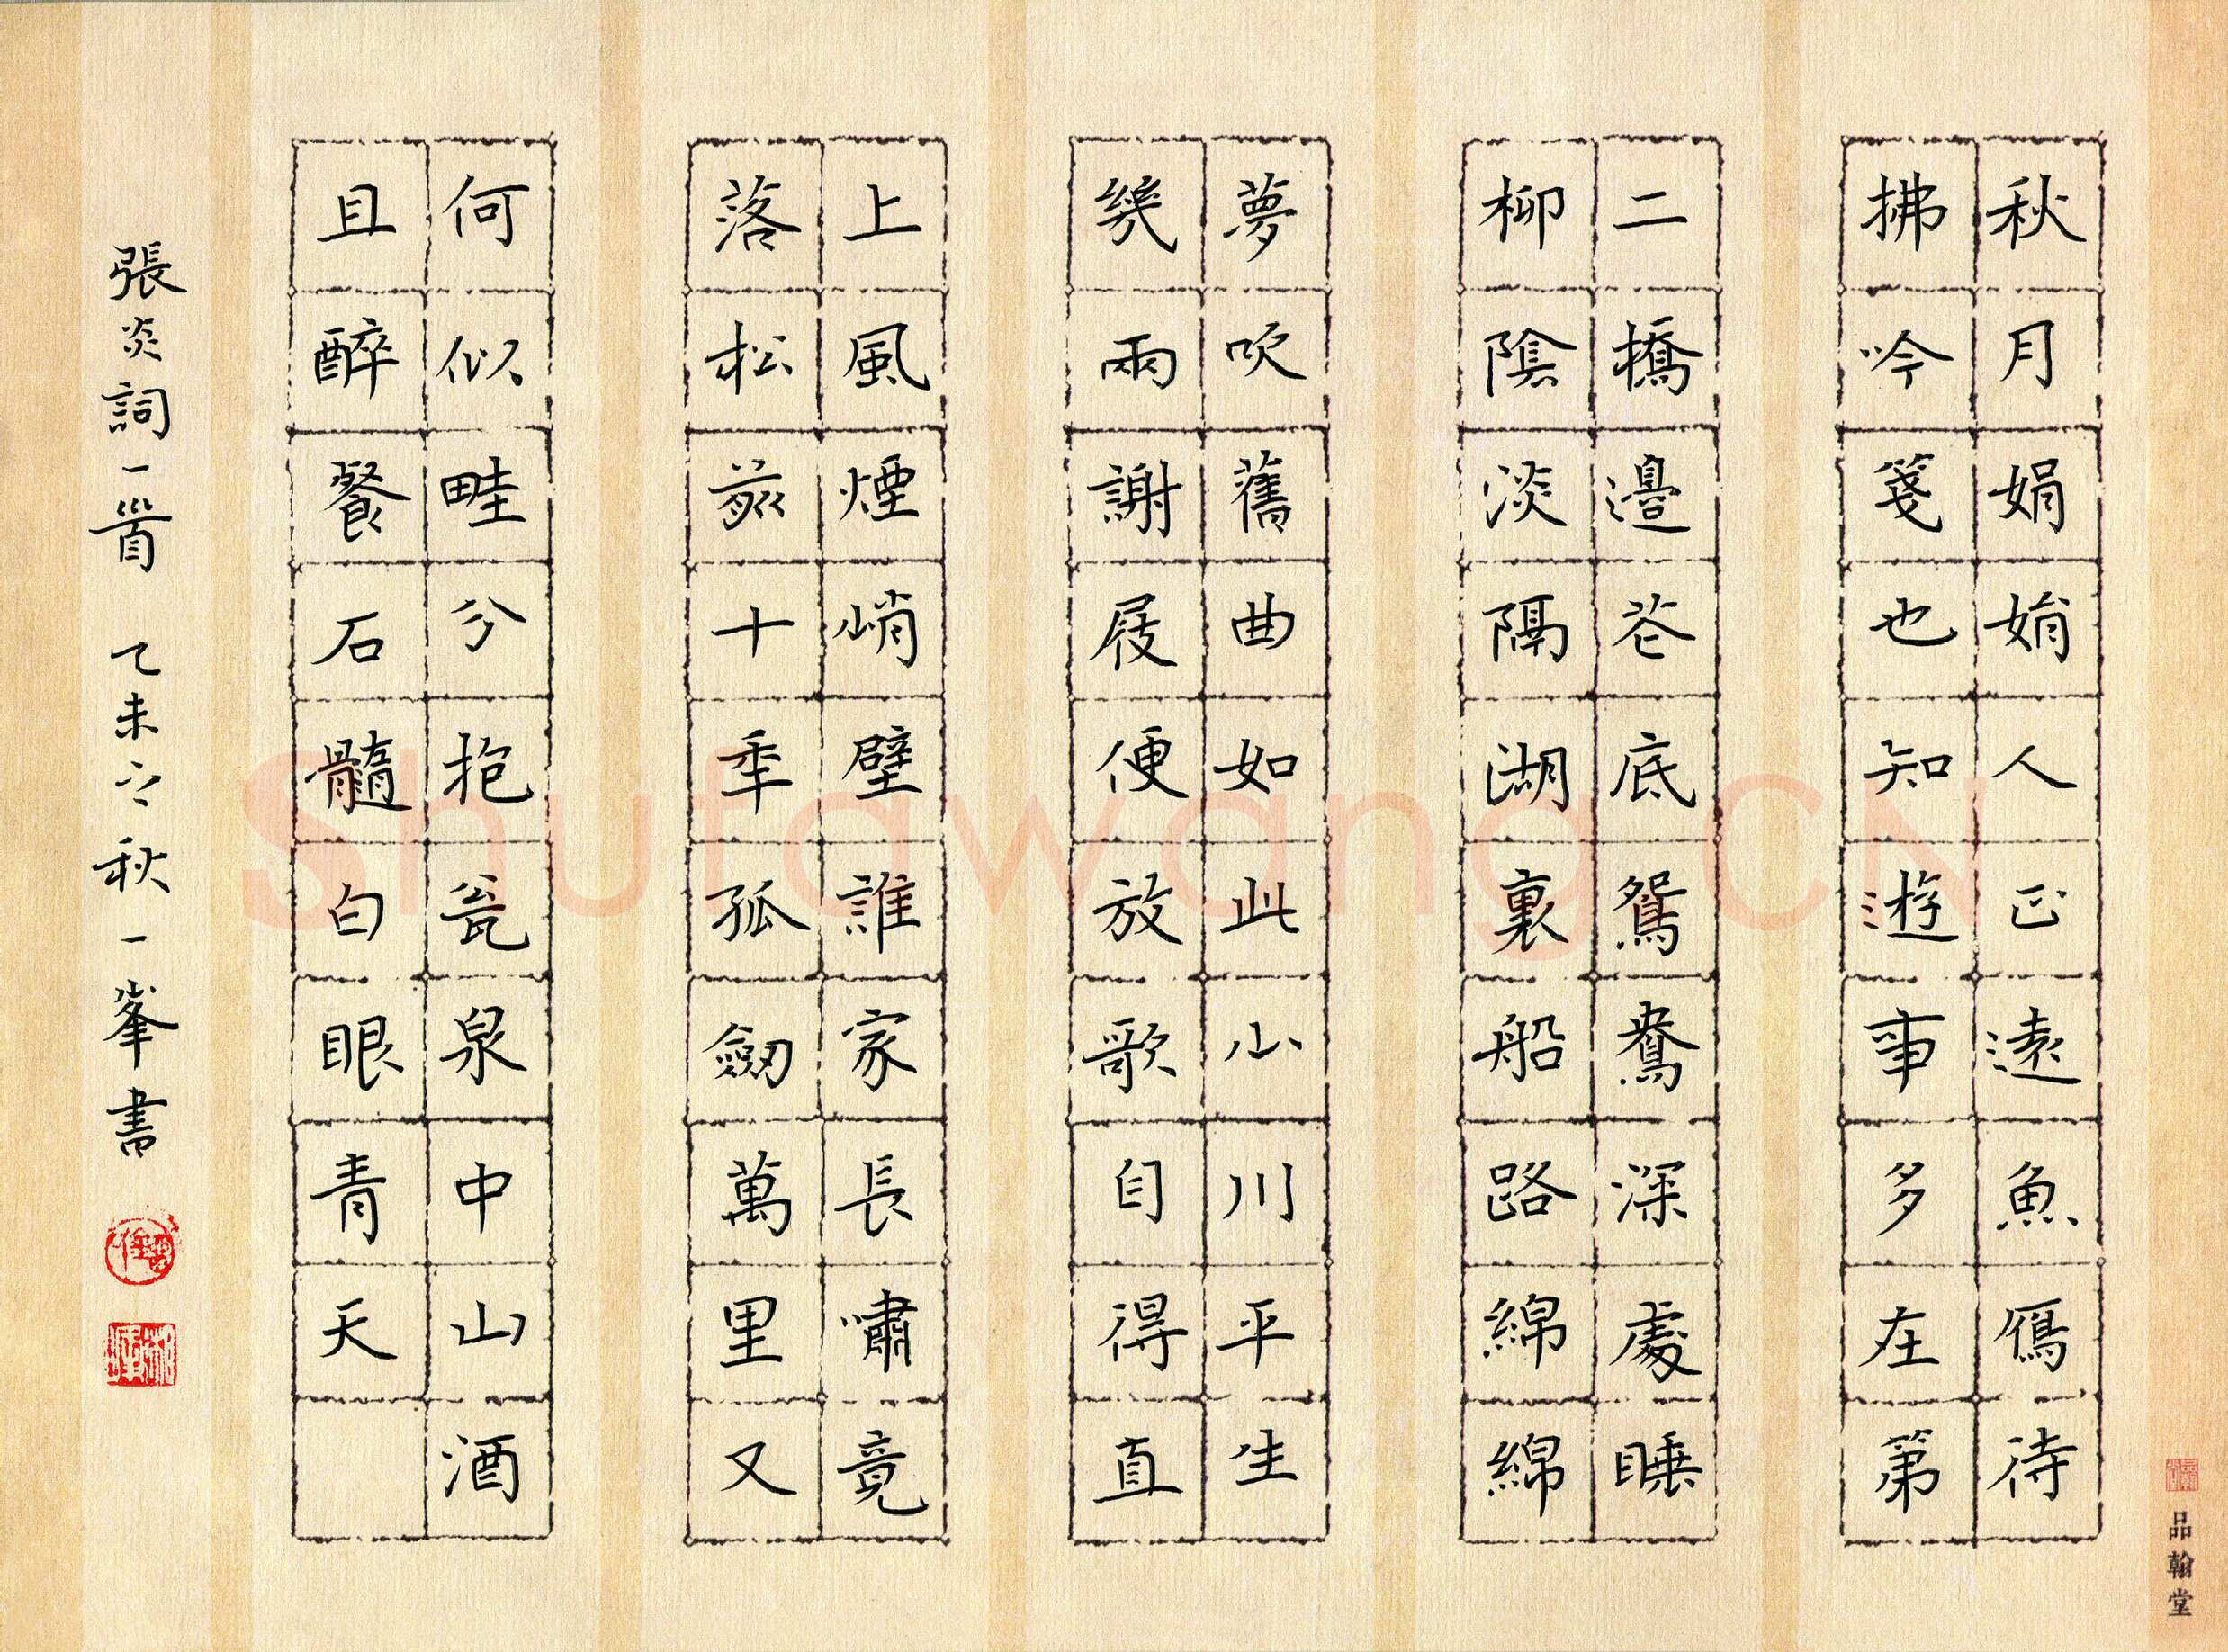 秋月娟娟人正遠魚鴈待
拂吟箋也知遊事多在第
二橋邊花底鴛鴦深處睡
柳陰淡隔湖裏船路綿綿
夢吹舊曲如此山川平生
幾兩謝屐便放歌自得直
上風煙峭壁誰家長嘯竟
落松前十年孤劒萬里又
何似畦分抱瓮泉中山酒
且醉餐石髓白眼青天
張炎詞一首 乙未之秋 一峯書
品翰堂
shufawang.cn